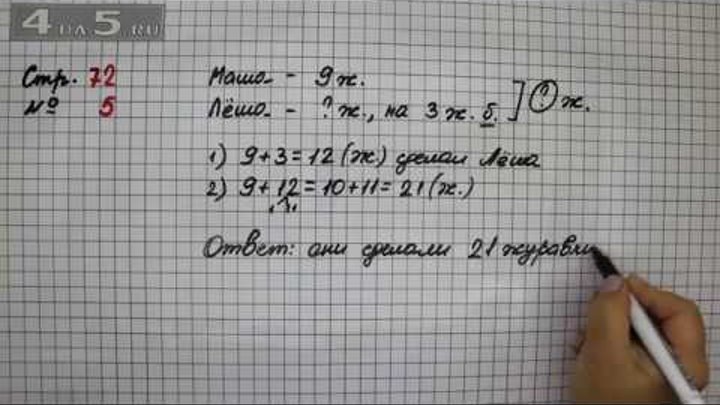 4 НА 5.RU
Стр. 72
№ 5
Маша - 9 ж.
Лёша - ? ж., на 3 ж. б. ] ? ж.
1) 9+3=12 (ж.) сделал Лёша
2) 9+12=10+11=21 (ж.)
1 11
Ответ: они сделали 21 журавли